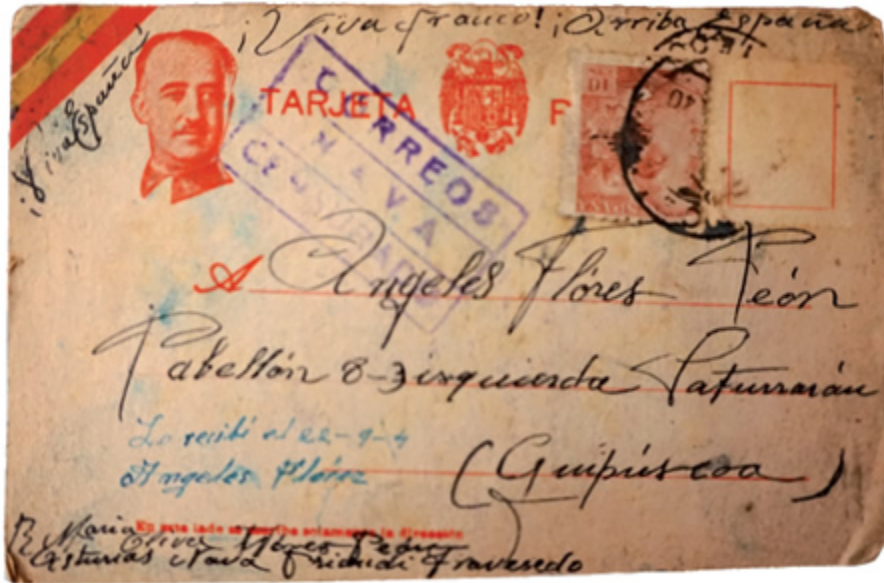 ¡Viva Franco! ¡Arriba España
¡Viva España!
TARJETA P
CORREOS
NAVA
CENSURADO
A Angeles Flóres Peón
Pabellón 8-3 izquierda Saturrarán
(Guipúscoa)
Lo recibí el 22-9-4
Angeles Flórez
En este lado se escribe solamente la dirección
R. Maria Flóres Peón
Asturias Nava Priandi Travesedo